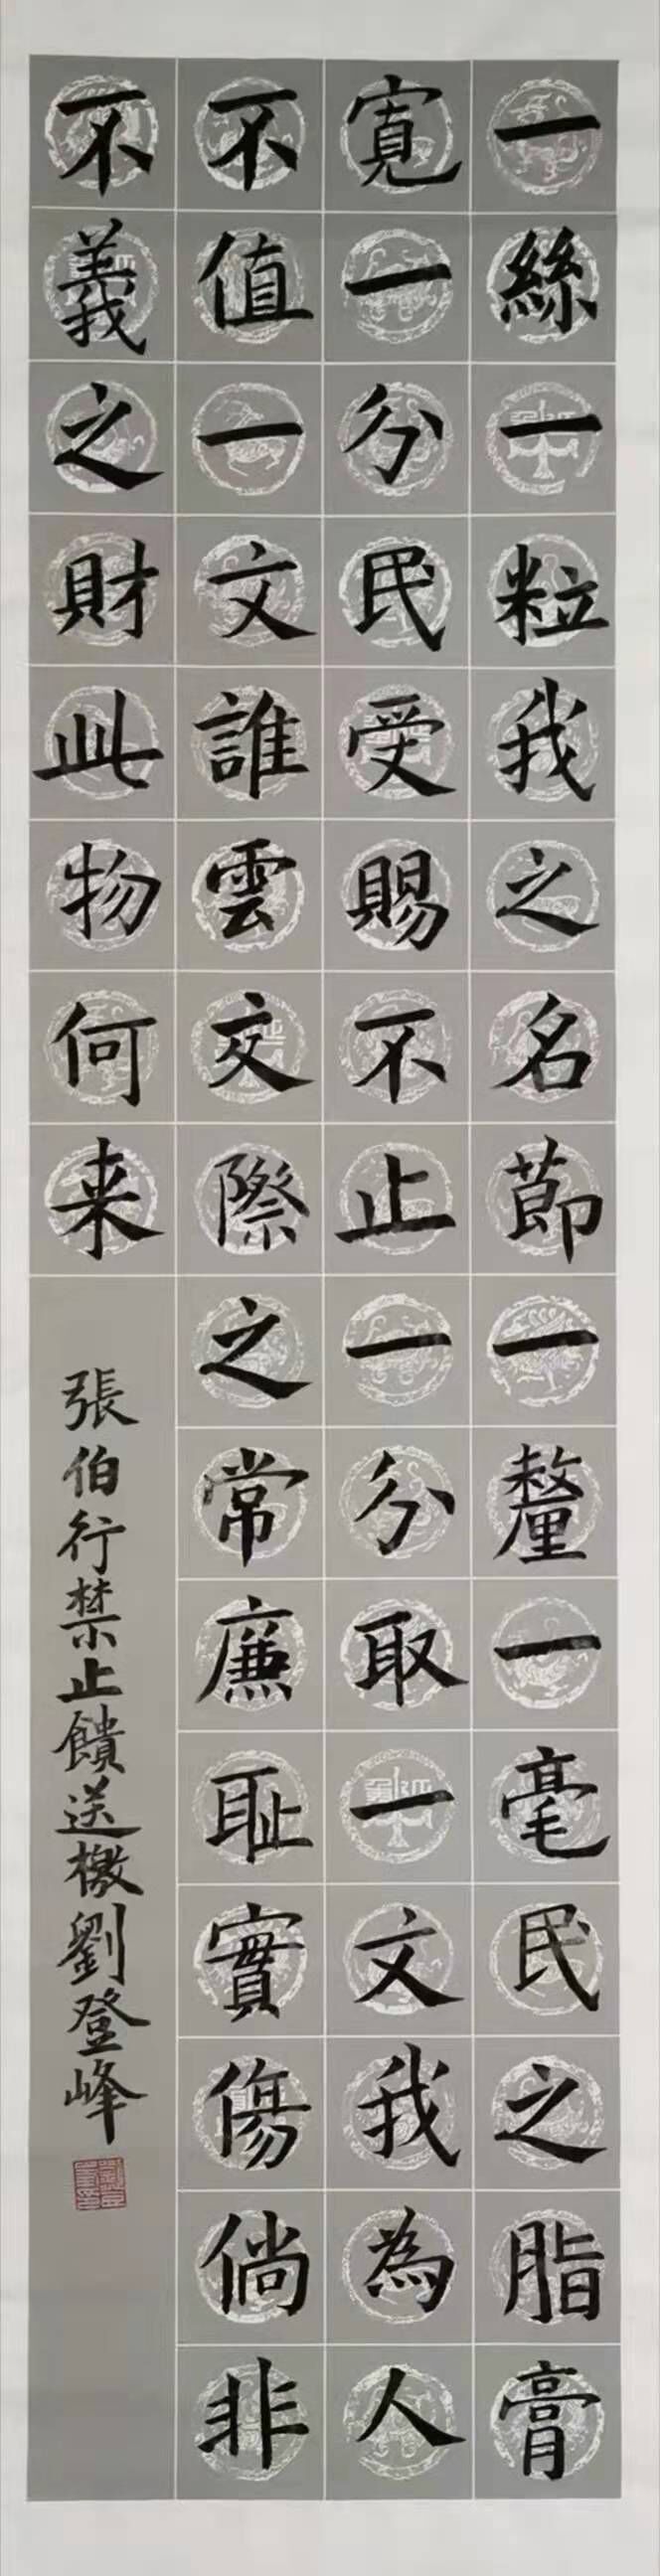 一絲一粒我之名節一釐一毫民之脂膏
寬一分民受賜不止一分取一文我為人
不值一文誰雲交際之常廉耻實傷倘非
不義之財此物何来
張伯行禁止饋送檄劉登峰